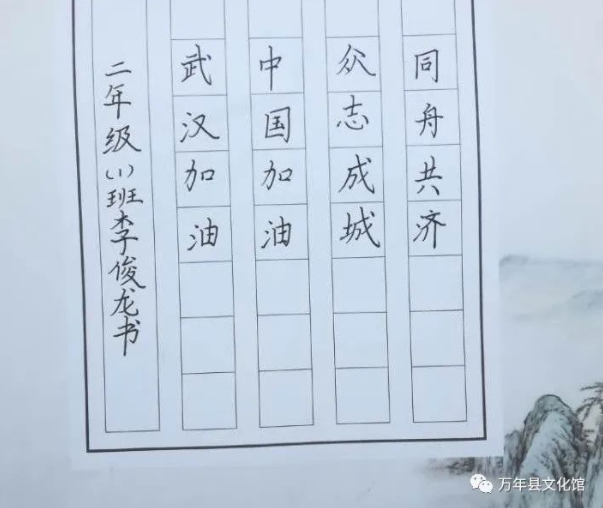 同舟共济
众志成城
中国加油
武汉加油
二年级(1)班李俊龙书
万年县文化馆